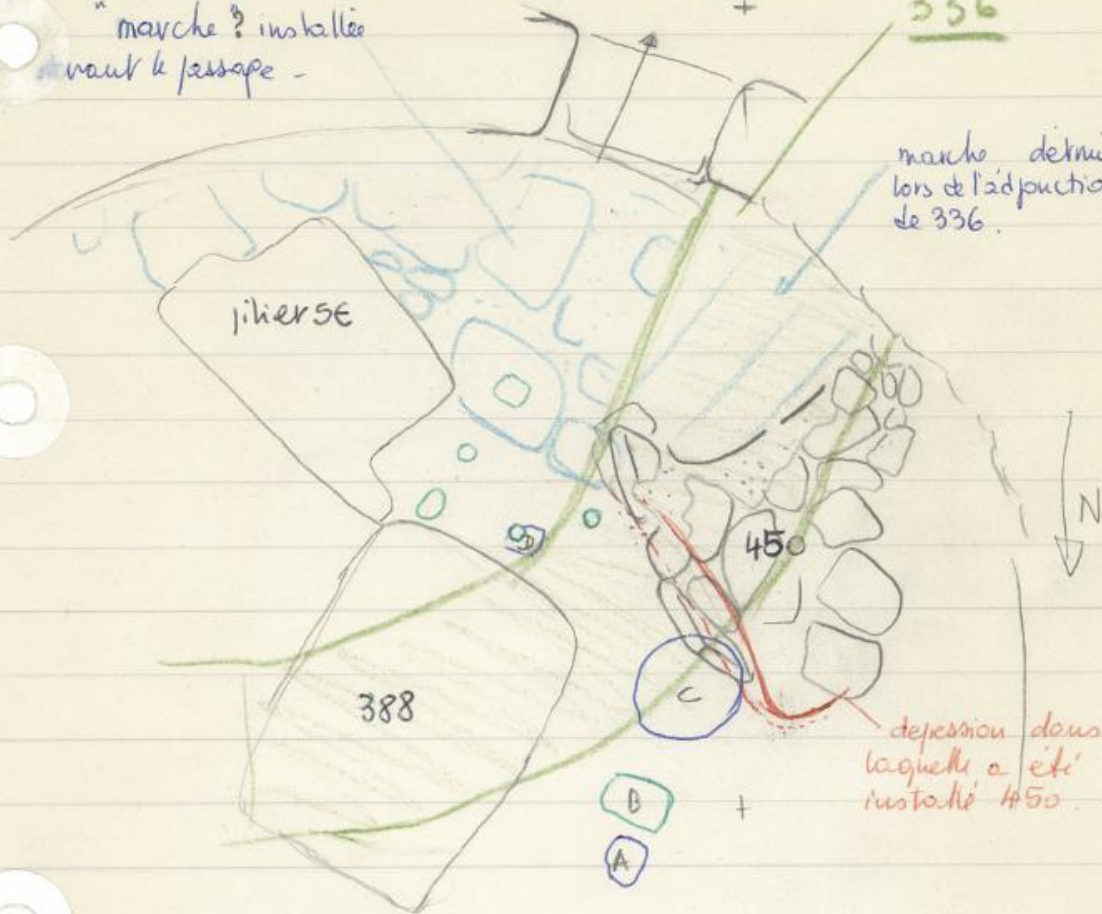 " marche ? installée
avant le passage -
336
marche détrui
lors de l'adjonctio
de 336.
pilier SE
D
450
N
388
C
depession dans
laquelle a été
installé 450.
B
A